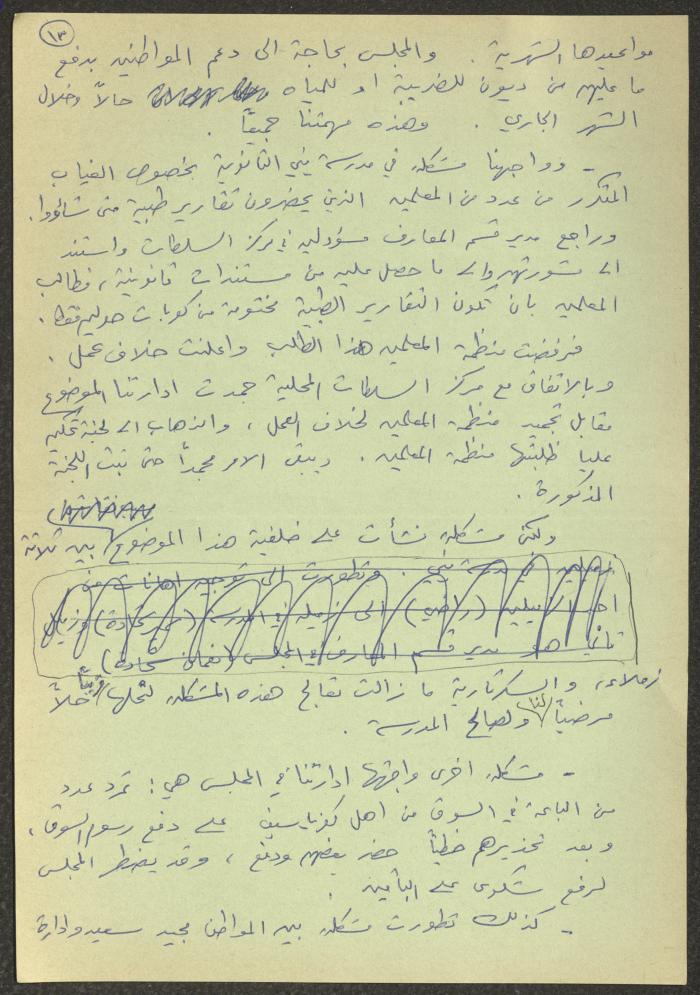 ١٣
مواعيدها الشهرية . والمجلس بحاجة الى دعم المواطنين بدفع
ما عليهم من ديون للضريبة او للمياه حالاً وخلال
الشهر الجاري . وهذه مهمتنا جميعاً .
- وواجهنا مشكلة في مدرسة يني الثانوية بخصوص الغياب
المتكرر من عدد من المعلمين الذين يحضرون تقارير طبية متى شاؤوا .
وراجع مدير قسم المعارف مسؤولين في مركز السلطات واستند
الى مشورتهم والى ما حصل عليه من مستندات قانونية ، فطالب
المعلمين بان تكون التقارير الطبية مختومة من كوبات حوليم فقط .
فرفضت منظمة المعلمين هذا الطلب واعلنت خلاف عمل .
وبالاتفاق مع مركز السلطات المحلية جمدت ادارتنا الموضوع
مقابل تجميد منظمة المعلمين لخلاف العمل ، والذهاب الى لجنة تحكيم
عليا طلبتها منظمة المعلمين . ويبقى الامر مجمداً حتى تبت اللجنة
المذكورة .
ولكن مشكلة نشأت على خلفية هذا الموضوع بين ثلاثة
زميلين في مدرسة يني . وتطورت الى توجيه اهانات من
احد الزميلين (راضي) الى زميله في المدرسة ( شحادة) وزميل
ثاني هو مدير قسم المعارف في المجلس ( شحادة)
زملاء ، والسكرتارية ما زالت تعالج هذه المشكلة لتحلها قريباً حلاً
مرضياً لنا ولصالح المدرسة .
- مشكلة اخرى واجهتها ادارتنا في المجلس هي : تمرد عدد
من الباعة في السوق من اهل كفرياسيف على دفع رسوم السوق ،
وبعد تحذيرهم خطياً حضر بعضهم ودفع ، وقد يضطر المجلس
لرفع شكوى على الباقين .
- كذلك تطورت مشكلة بين المواطن مجيد سعيد وادارة